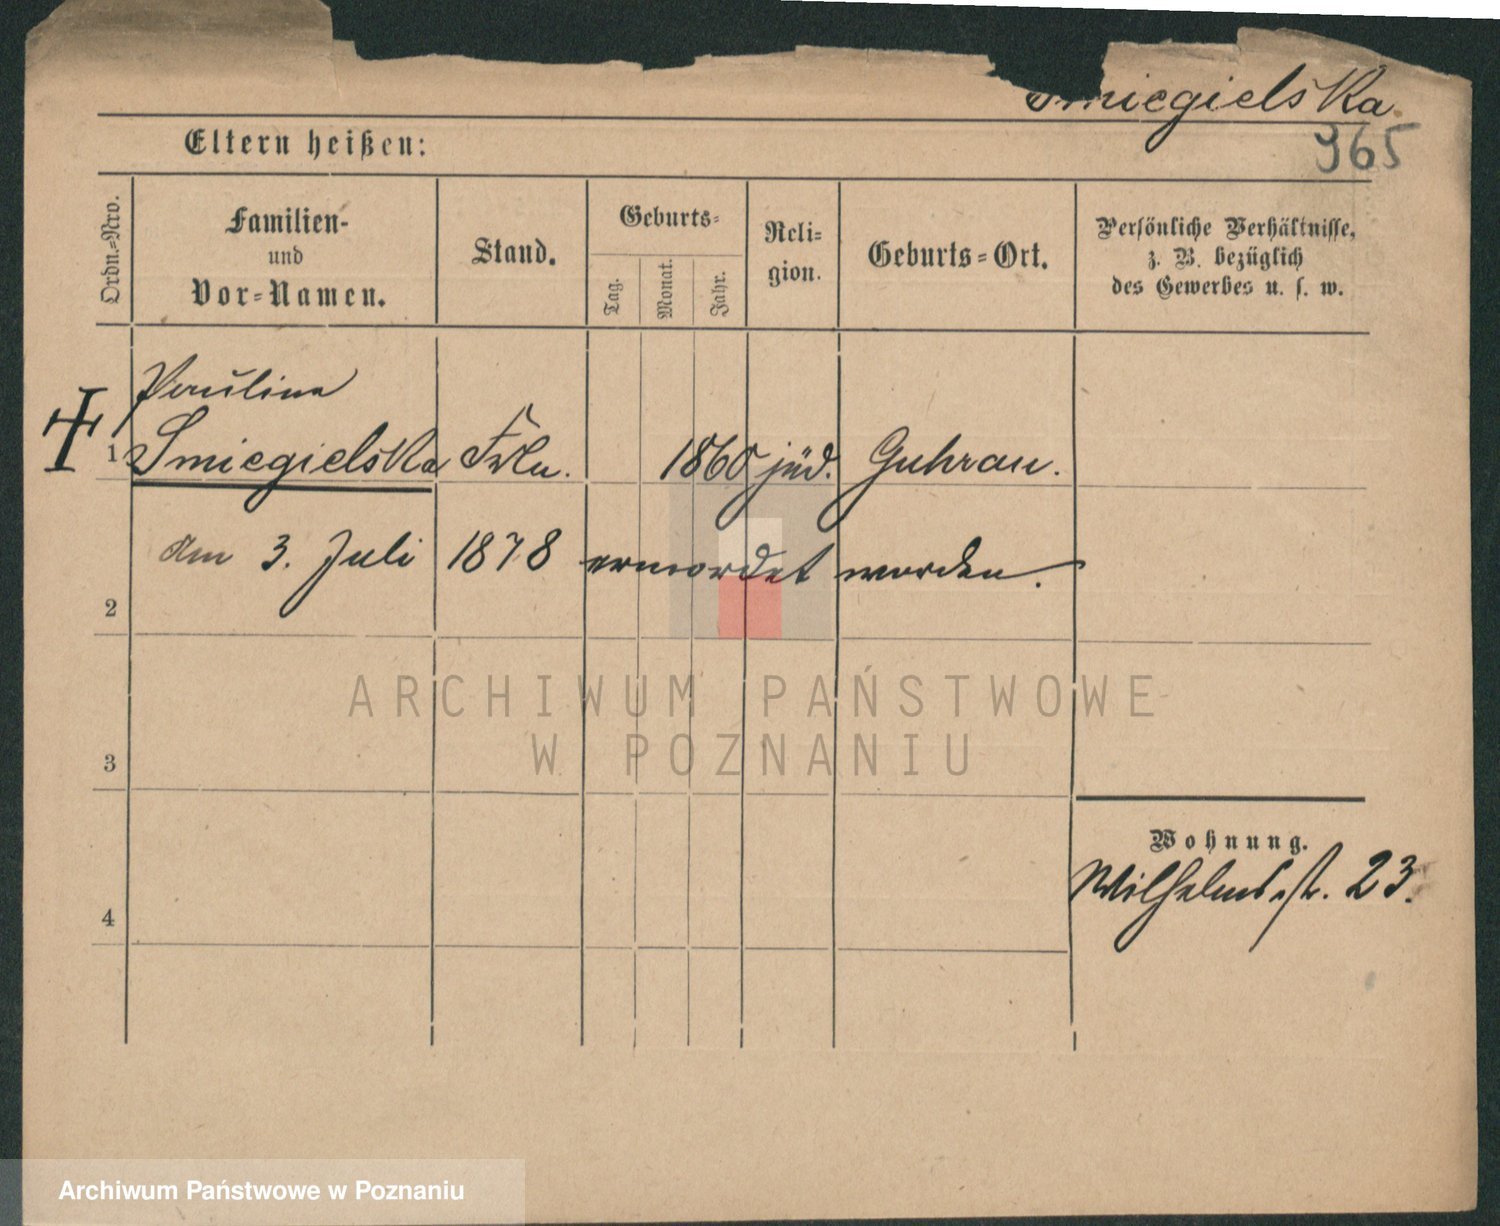 Smiegielska
965
Eltern heißen:
Ordn.=Nro.
Familien-
und
Vor=Namen.
Stand.
Geburts=
Tag.
Monat.
Jahr.
Reli=
gion.
Geburts=Ort.
Persönliche Verhältnisse,
z. B. bezüglich
des Gewerbes u. s. w.
Paulina
1 Smiegielska Frln. 1860 jüd. Guhrau.
am 3. Juli 1878 ermordet worden.
2
ARCHIWUM PAŃSTWOWE
W POZNANIU
3
Wohnung.
Wilhelmsstr. 23.
4
Archiwum Państwowe w Poznaniu